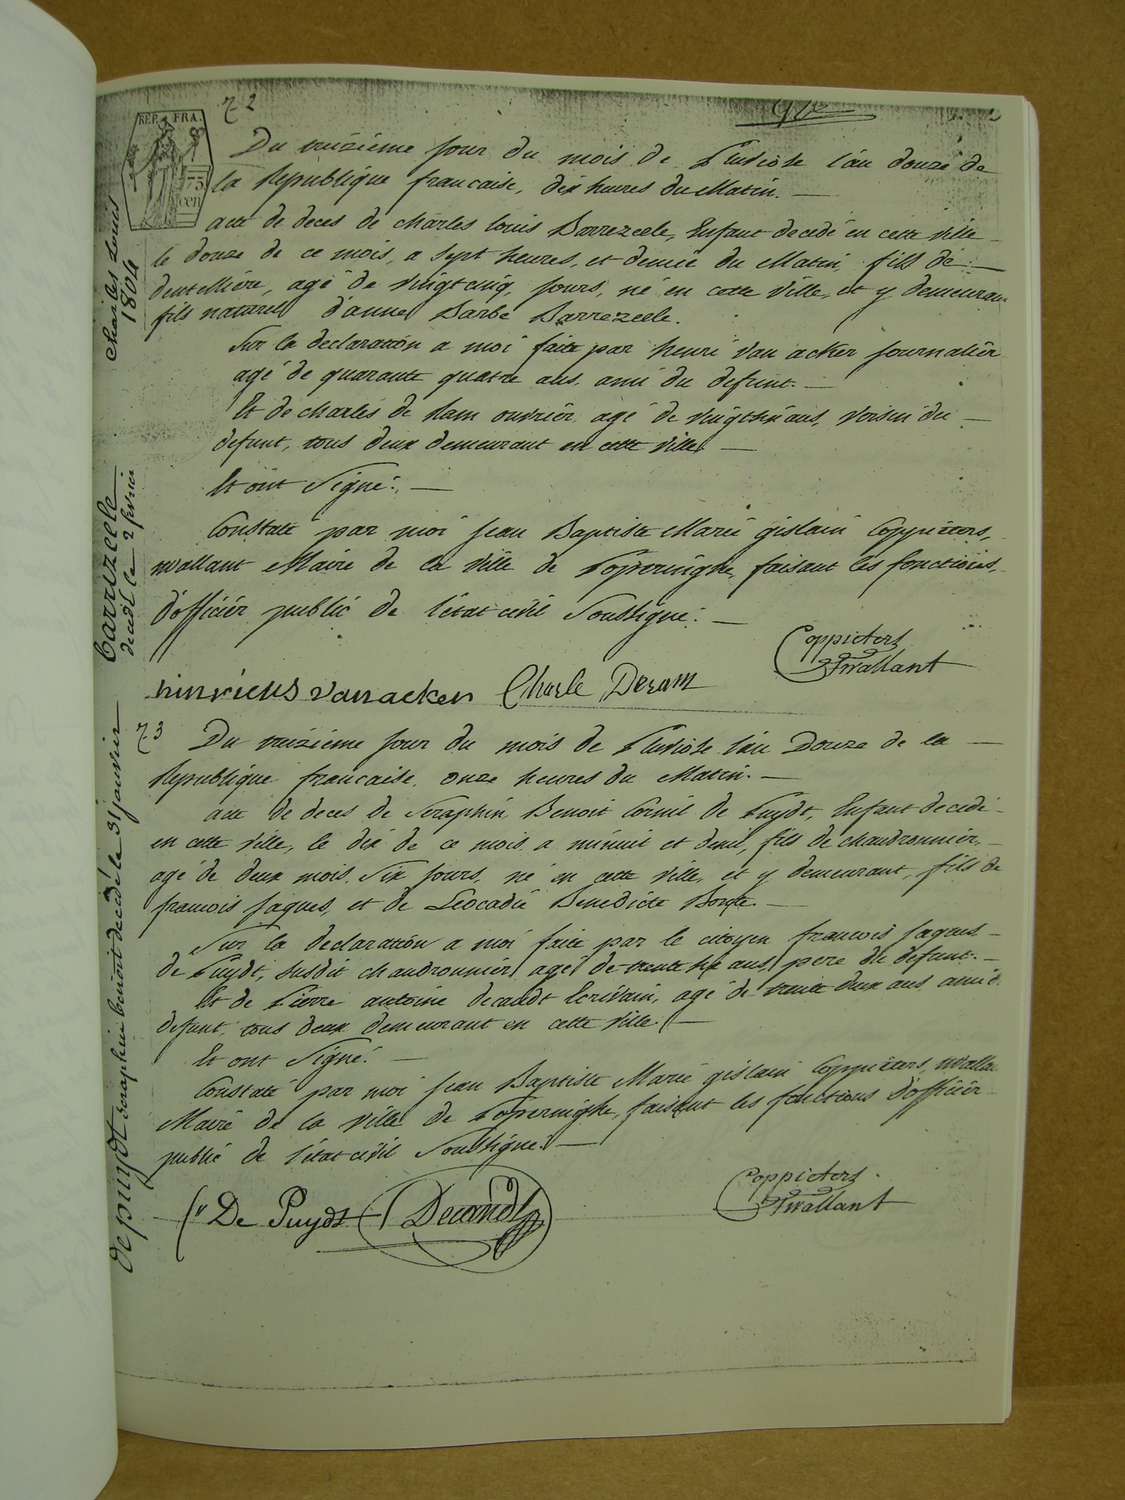 72
REP. FRA.
75
cen
Du treizième jour du mois de Pluviose l'an douze de
la Republique francaise, dix heures du Matin. —
acte de deces de charles louis Barrezeele, Enfant decedé en cette ville
le douze de ce mois, a sept heures, et demie du Matin, fils de —
dentellière, agé de vingt cinq jours, né en cette ville, et y demeurant
fils naturel d'anne Barbe Barrezeele.
Sur la declaration a moi faite par henri van acker journalier
agé de quarante quatre ans, ami du defunt. —
Et de charles de Ram ouvrier, agé de vingt ans, voisin du —
defunt, tous deux demeurant en cette ville —
Et ont Signé. —
Constaté par moi jean Baptiste Marie gislain Coppieters,
wallant Maire de la ville de Poperinghe, faisant les fonctions,
d'officier public de l'état civil Soussigné. —
Coppieters
wallant
hinricus vanacker Charle Deram
charles Louis
1804
barrizeele
decedé le 2 fevrier
73
Du treizième jour du mois de Pluviose l'an Douze de la —
Republique francaise, onze heures du Matin. —
acte de deces de Seraphin Benoit Cornil de Puydt, Enfant decedé
en cette ville, le dix de ce mois a minuit et demi, fils de chaudronnier, —
agé de deux mois, Six jours, né en cette ville, et y demeurant, fils de
francois Jaques, et de Léocadie Benedicte —
Sur la declaration a moi faite par le citoyen francois Jaques —
de Puydt, susdit chaudronnier, agé de trente ans, père du defunt. —
Et de Pierre antoine decandt Ecrivain, agé de trente deux ans ami d.
defunt, tous deux demeurant en cette ville. —
Et ont Signé. —
Constaté par moi jean Baptiste Marie gislain Coppieters, walla
Maire de la ville de Poperinghe, faisant les fonctions d'officier
public de l'état civil Soussigné. —
Coppieters
wallant
De Puydt Decandt
de puydt seraphin benoit decedé le 31 janvier